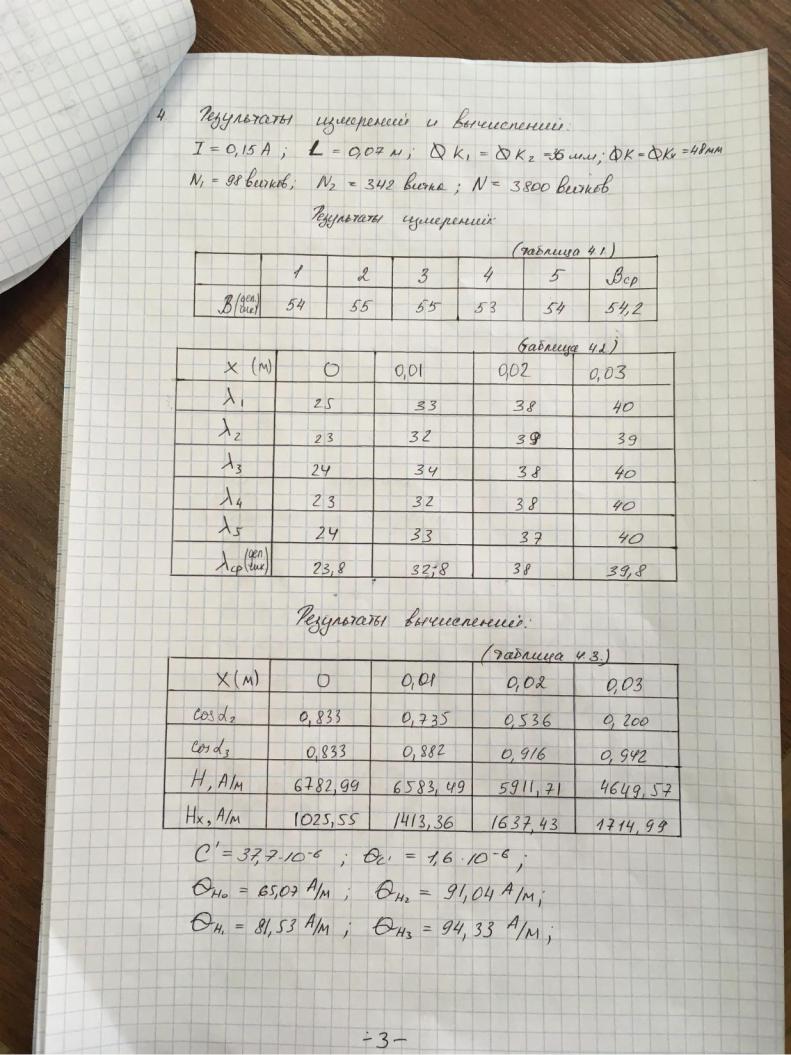 4 Результаты измерений и вычислений:
I = 0,15 А ; L = 0,07 м ; Ø K₁ = Ø K₂ = 36 мм; Ø K = Ø Kₓ = 48 мм
N₁ = 98 витков; N₂ = 342 витка ; N = 3800 витков
Результаты измерений:
(таблица 4.1)
1 2 3 4 5 Bср
B (дел. шк) 54 55 55 53 54 54,2
(таблица 4.2)
X (м) 0 0,01 0,02 0,03
λ₁ 25 33 38 40
λ₂ 23 32 39 39
λ₃ 24 34 38 40
λ₄ 23 32 38 40
λ₅ 24 33 37 40
λср (дел. шк) 23,8 32,8 38 39,8
Результаты вычислений:
(таблица 4.3.)
X (м) 0 0,01 0,02 0,03
cos α₂ 0,833 0,735 0,536 0,200
cos α₃ 0,833 0,882 0,916 0,942
H, А/м 6782,99 6583,49 5911,71 4649,57
Hx, А/м 1025,55 1413,36 1637,43 1714,99
C' = 37,7·10⁻⁶ ; ΘC' = 1,6·10⁻⁶ ;
ΘH₀ = 65,07 А/м ; ΘH₂ = 91,04 А/м;
ΘH₁ = 81,53 А/м ; ΘH₃ = 94,33 А/м ;
-3-